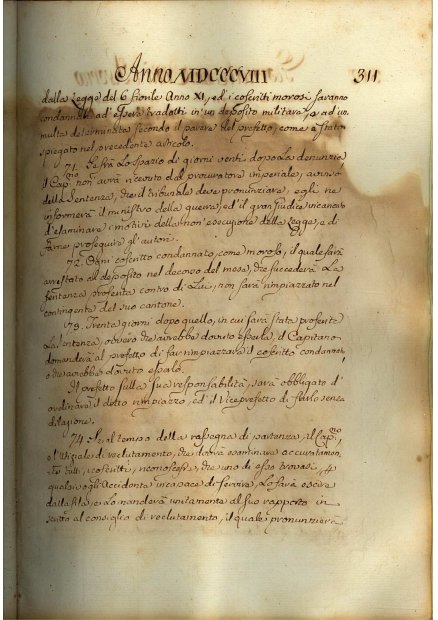 Anno MDCCCVIII 311
dalla Legge del 6 fiorile Anno XI, ed i coscritti morosi saranno
condannati ad essere tradotti in un deposito militare, e ad un
multa determinata secondo il parere del prefetto, come è stato
spiegato nel precedente articolo.
71. Se frà lo spazio di giorni venti dopo la denunzia
il Cap.no non avrà ricevuto dal procuratore imperiale, avviso
della Sentenza, che il tribunale deve pronunziare, egli ne
informerà il ministro della guerra, ed il gran Giudice incaricato
d'esaminare i motivi della non esecuzione della Legge, e di
farne proseguire gl'autori.
72. Ogni coscritto condannato, come moroso, il quale sarà
arrestato al deposito nel decorso del mese, che succederà la
sentenza proferita contro di Lui, non sarà rimpiazzato nel
contingente del suo cantone.
73. Trenta giorni dopo quello, in cui sarà stata proferita
La sentenza, ovvero che avrebbe dovuto esserla, il Capitano
domanderà al prefetto di far rimpiazzare il coscritto condannato
o che avrebbe dovuto esserlo.
Il prefetto sulla sua responsabilità, sarà obbligato d'
ordinare il detto rimpiazzo, ed il Viceprefetto di farlo senza
dilazione.
74. Se al tempo della rassegna di partenza, il Cap.no
e l'Uffiziale di reclutamento, che dovrà esaminare accuratamen,
te tutti i coscritti, riconoscesse, che uno di essi trovasi, per
qualsivoglia Accidente incapace di servire, Lo farà escire
dalla fila, e Lo manderà unitamente al suo rapporto in
scritto al consiglio di reclutamento, il quale pronunzierà